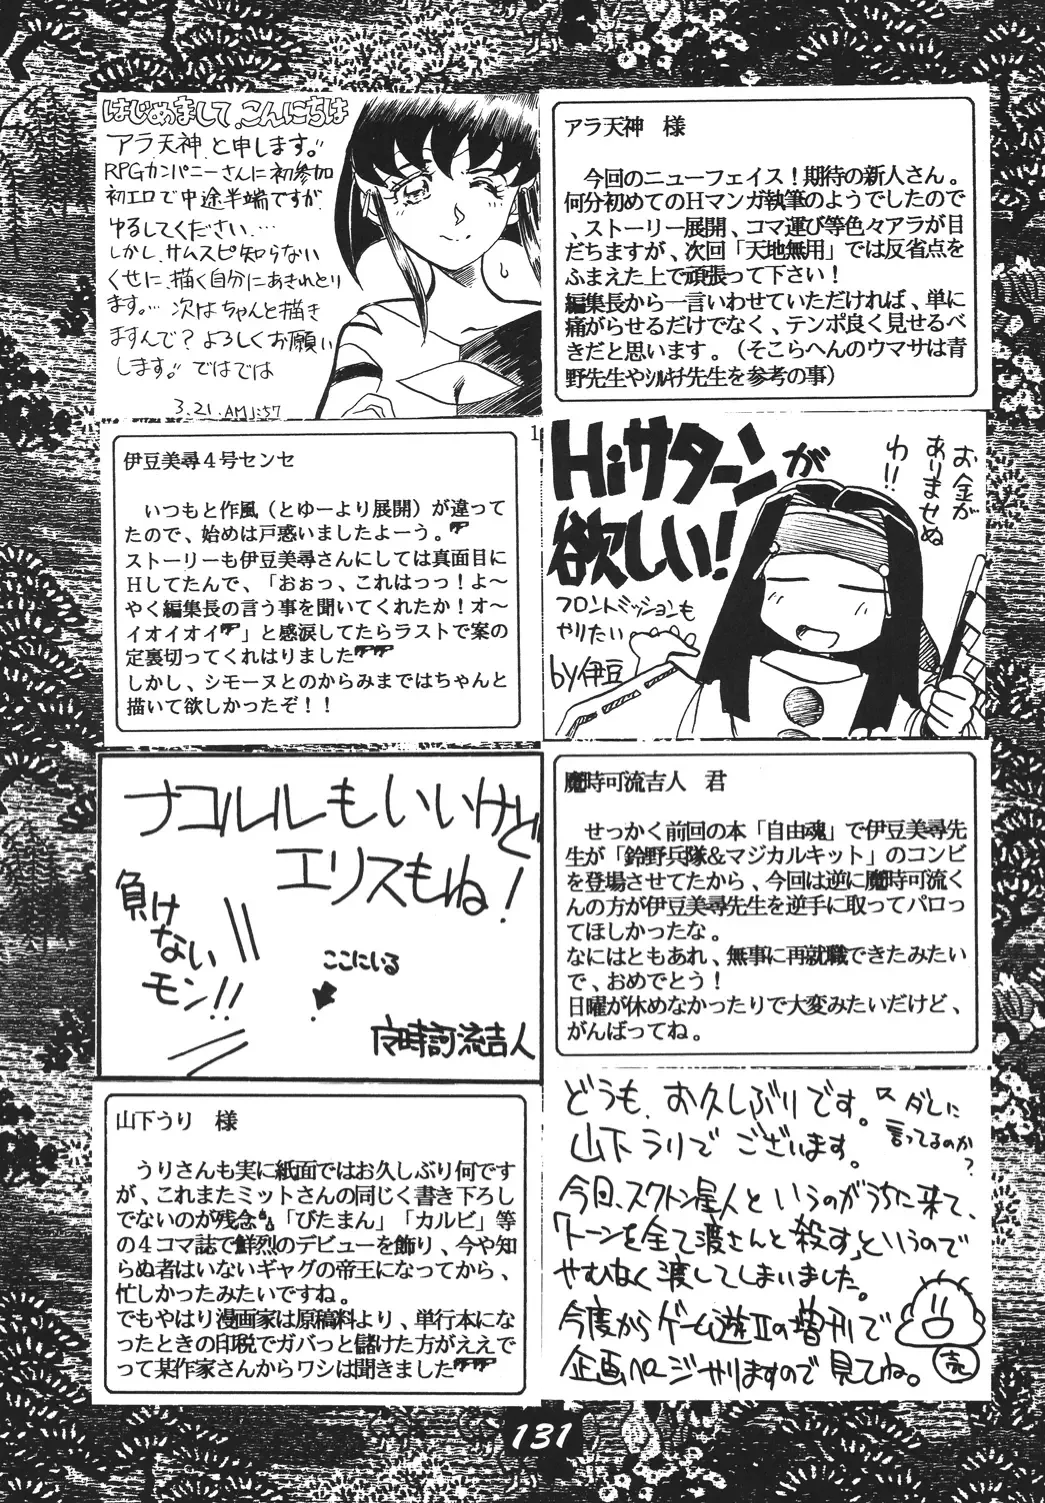 はじめまして、こんにちは
アラ天神と申します!!
RPGカンパニーさんに初参加
初エロで中途半端ですが
ゆるしてください……
しかし、サムスピ知らない
くせに、描く自分にあきれとり
ます…。次はちゃんと描き
ますんで?よろしくお願い
します!!ではでは
3.21.AM1:57
アラ天神　様
今回のニューフェイス！期待の新人さん。
何分初めてのHマンガ執筆のようでしたので
、ストーリー展開、コマ運び等色々アラが目
だちますが、次回「天地無用」では反省点を
ふまえた上で頑張って下さい！
編集長から一言いわせていただければ、単に
痛がらせるだけでなく、テンポ良く見せるべ
きだと思います。（そこらへんのウマサは青
野先生やｼﾙｷﾁ先生を参考の事）
伊豆美尋４号センセ
いつもと作風（とゆーより展開）が違って
たので、始めは戸惑いましたよーう。
ストーリーも伊豆美尋さんにしては真面目に
Hしてたんで、「おぉっ、これはっっ！よ～
やく編集長の言う事を聞いてくれたか！オ～
イオイオイ」と感涙してたらラストで案の
定裏切ってくれはりました
しかし、シモーヌとのからみまではちゃんと
描いて欲しかったぞ！！
1
Hiサターンが
欲しい!
お金が
ありませぬ
わ!!
フロントミッションも
やりたい
by伊豆
ナコルルもいいけど
エリスもね!
負け
ない
モン!!
ここにいる
魔時可流吉人
魔時可流吉人　君
せっかく前回の本「自由魂」で伊豆美尋先
生が「鈴野兵隊&マジカルキット」のコンビ
を登場させてたから、今回は逆に魔時可流く
んの方が伊豆美尋先生を逆手に取ってパロっ
てほしかったな。
なにはともあれ、無事に再就職できたみたい
で、おめでとう！
日曜が休めなかったりで大変みたいだけど、
がんばってね。
山下うり　様
うりさんも実に紙面ではお久しぶり何です
が、これまたミットさんの同じく書き下ろし
でないのが残念「びたまん」「カルビ」等
の４コマ誌で鮮烈のデビューを飾り、今や知
らぬ者はいないギャグの帝王になってから、
忙しかったみたいですね。
でもやはり漫画家は原稿料より、単行本にな
ったときの印税でガバっと儲けた方がええで
って某作家さんからワシは聞きました
どうも、お久しぶりです。
ダレに
言ってるのか?
山下うりでございます。
今日、スクトン星人というのがうちに来て、
「トーンを全て渡さんと殺す」というので
やむなく渡してしまいました。
今度からゲーム遊IIの増刊で
企画ページやりますので見てね。
売
131